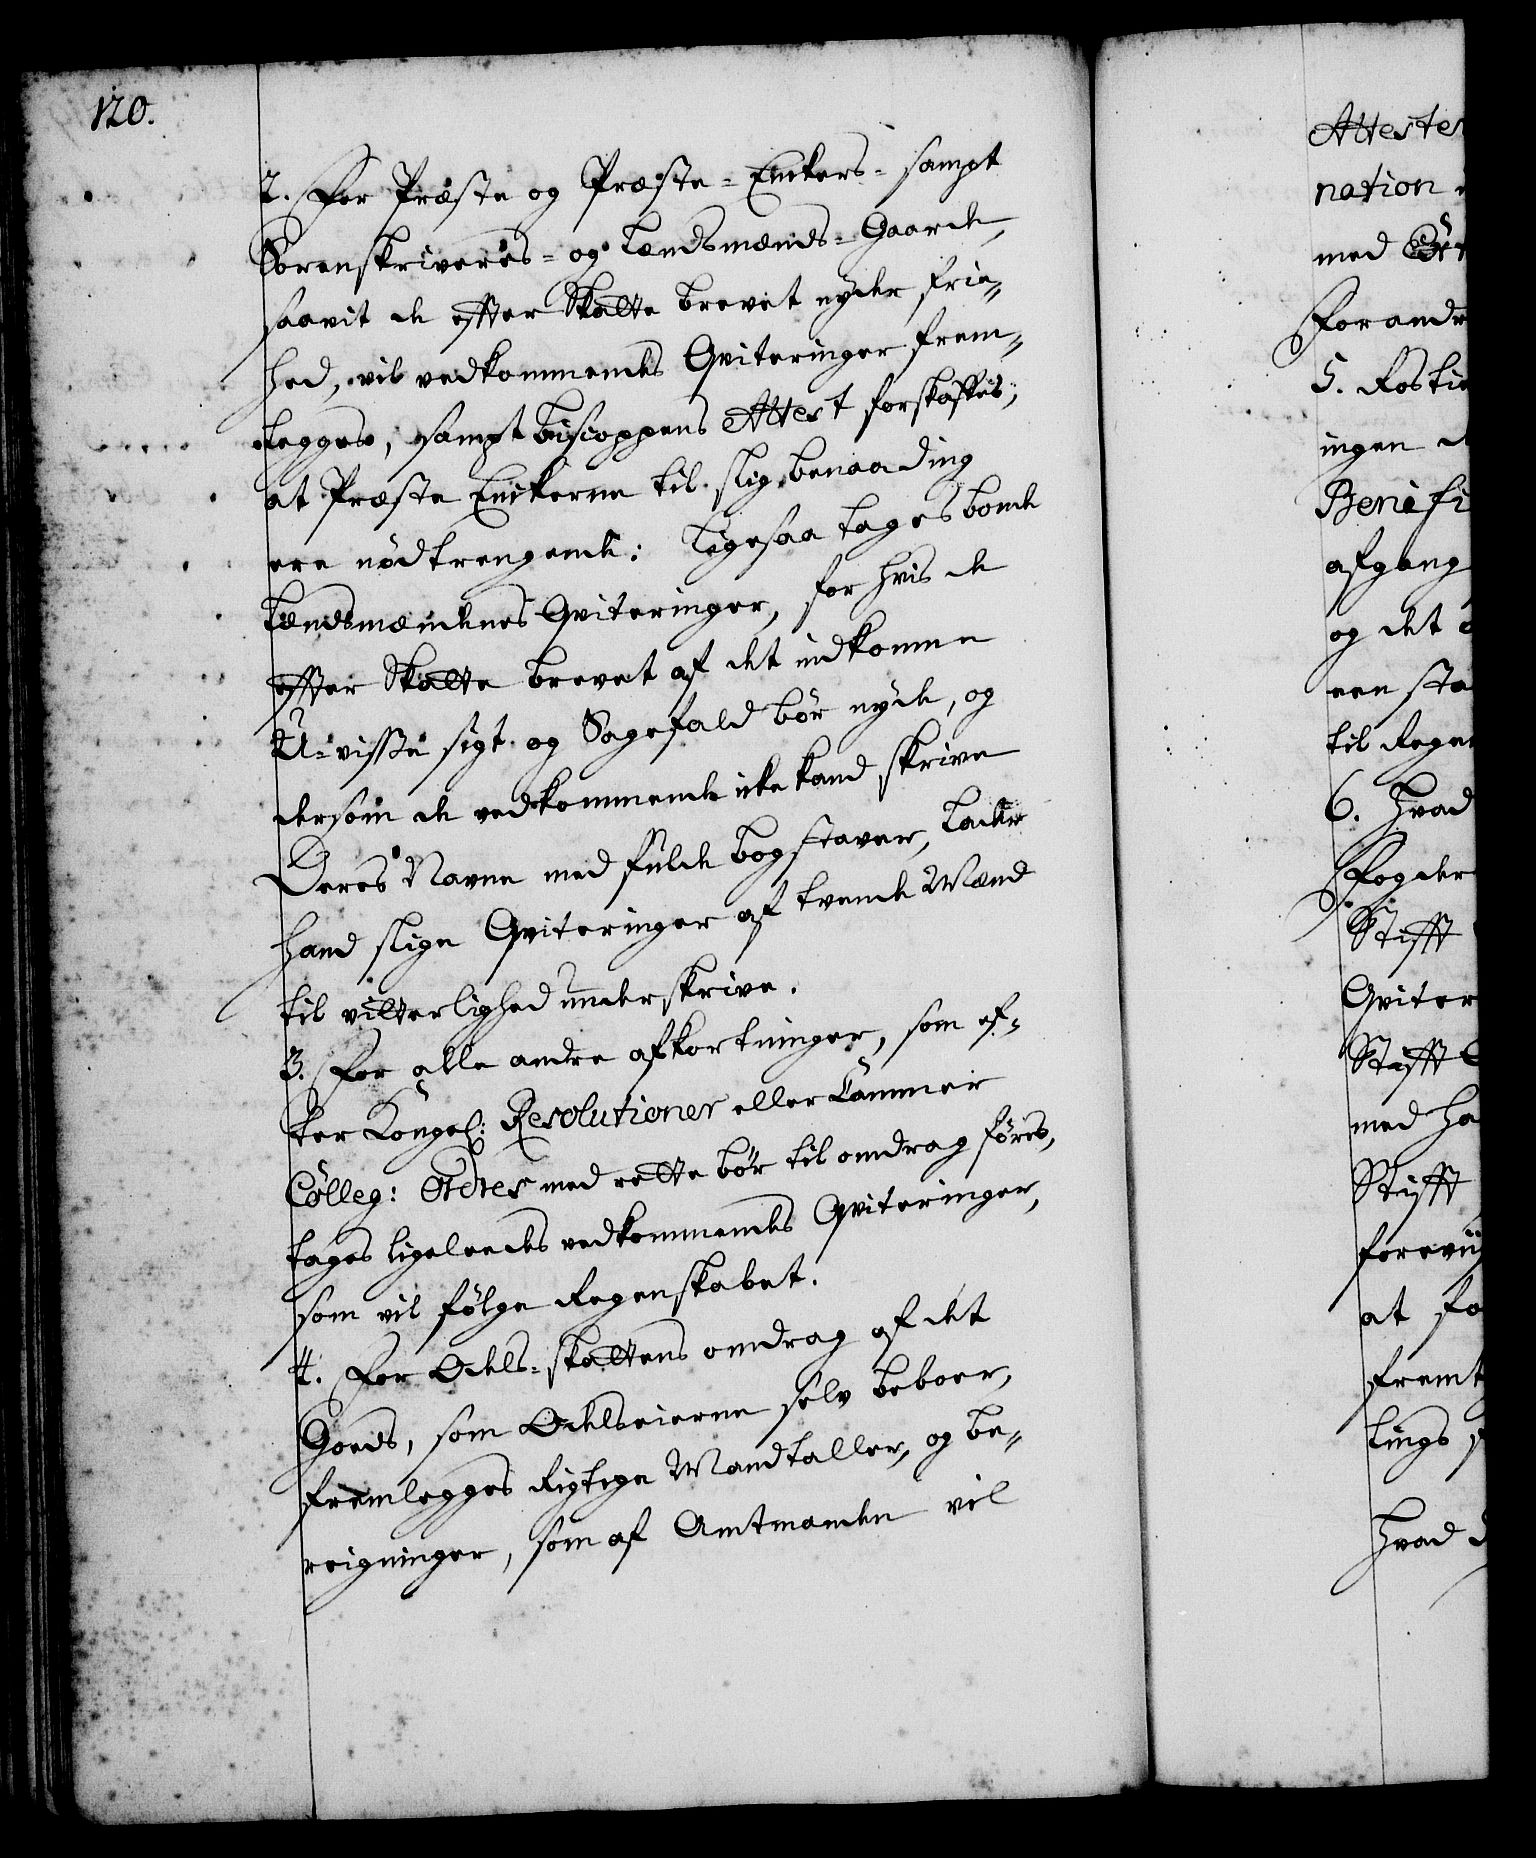 120.
2. For Præste og Præste-Enckers- sampt
Sorenskriveres- og Lendsmænds-Gaarde,
saavit de efter Skatte brevet nyder frie„
hed, vil vedkommendes Qviteringer frem„
legges, sampt Biscoppens Attest forskaffes,
at Præste Enckerne til slig benaading
ere nødtrengende: Ligesaa tages bonde
Lendsmændenes Qviteringer, for hvis de
effter Skatte brevet af det indkomne
U-visse sigt og Sagefald bør nyde, og
dersom de vedkommende icke kand skrive
Deres Navne med fulde bogstaver, lader
hand slige Qviteringer af tvende Mænd
til vitterlighed underskrive.
3. For alle andre afkortninger, som ef„
ter Kongel: Resolutioner eller Cammer
Colleg: Ordres med rette bør til omdrag føres,
tages ligeleedes vedkommendes Qviteringer,
som vil følge Regenskabet.
4. For Odels-skattens omdrag af det
Goeds, som Odelseierne selv beboer,
fremlegges Rigtige Mandtaller, og be„
reigninger, som af Amtmanden vil
Attester
nation
med
Forandr
5. Rostie
ingen
Benefi
afgang
og det
een sta
til Regen
6. Hvad
Fogder
Stifft
Qviter
Stifft
med ha
Stifft
foreviis
at fo
fremt
tings
Hvad